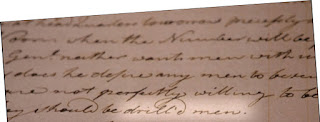 at head Quarters tomorrow precisely
when the Number will be
Genl. neither wants men with
does he desire any men to be
are not perfectly willing to be
ey should be drill'd men.